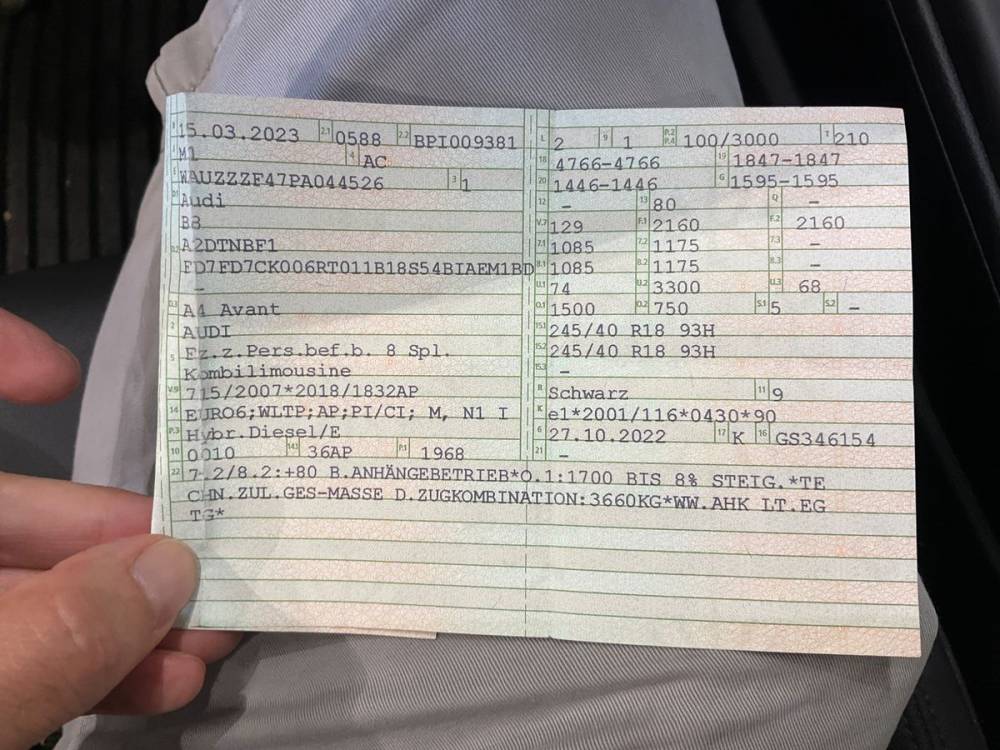 15.03.2023 2.1 0588 2.2 BPI009381
J M1 4 AC
WAUZZZF47PA044526 3 1
Audi
B8
D.2 A2DTNBF1
FD7FD7CK006RT011B18S54BIAEM1BD
–
D.3 A4 Avant
2 AUDI
5 Fz.z.Pers.bef.b. 8 Spl.
Kombilimousine
V.9 715/2007*2018/1832AP
14 EURO6;WLTP;AP;PI/CI; M, N1 I
P.3 Hybr.Diesel/E
10 0010 14.1 36AP P.1 1968
22 7.2/8.2:+80 B.ANHÄNGEBETRIEB*O.1:1700 BIS 8% STEIG.*TE
CHN.ZUL.GES-MASSE D.ZUGKOMBINATION:3660KG*WW.AHK LT.EG
TG*
L 2 9 1 P.2 P.4 100/3000 T 210
18 4766–4766 19 1847–1847
20 1446–1446 G 1595–1595
12 – 13 80 Q –
V.7 129 F.1 2160 F.2 2160
7.1 1085 7.2 1175 7.3 –
8.1 1085 8.2 1175 8.3 –
U.1 74 U.2 3300 U.3 68
O.1 1500 O.2 750 S.1 5 S.2 –
15.1 245/40 R18 93H
15.2 245/40 R18 93H
15.3 –
R Schwarz 11 9
K e1*2001/116*0430*90
6 27.10.2022 17 K 16 GS346154
21 –